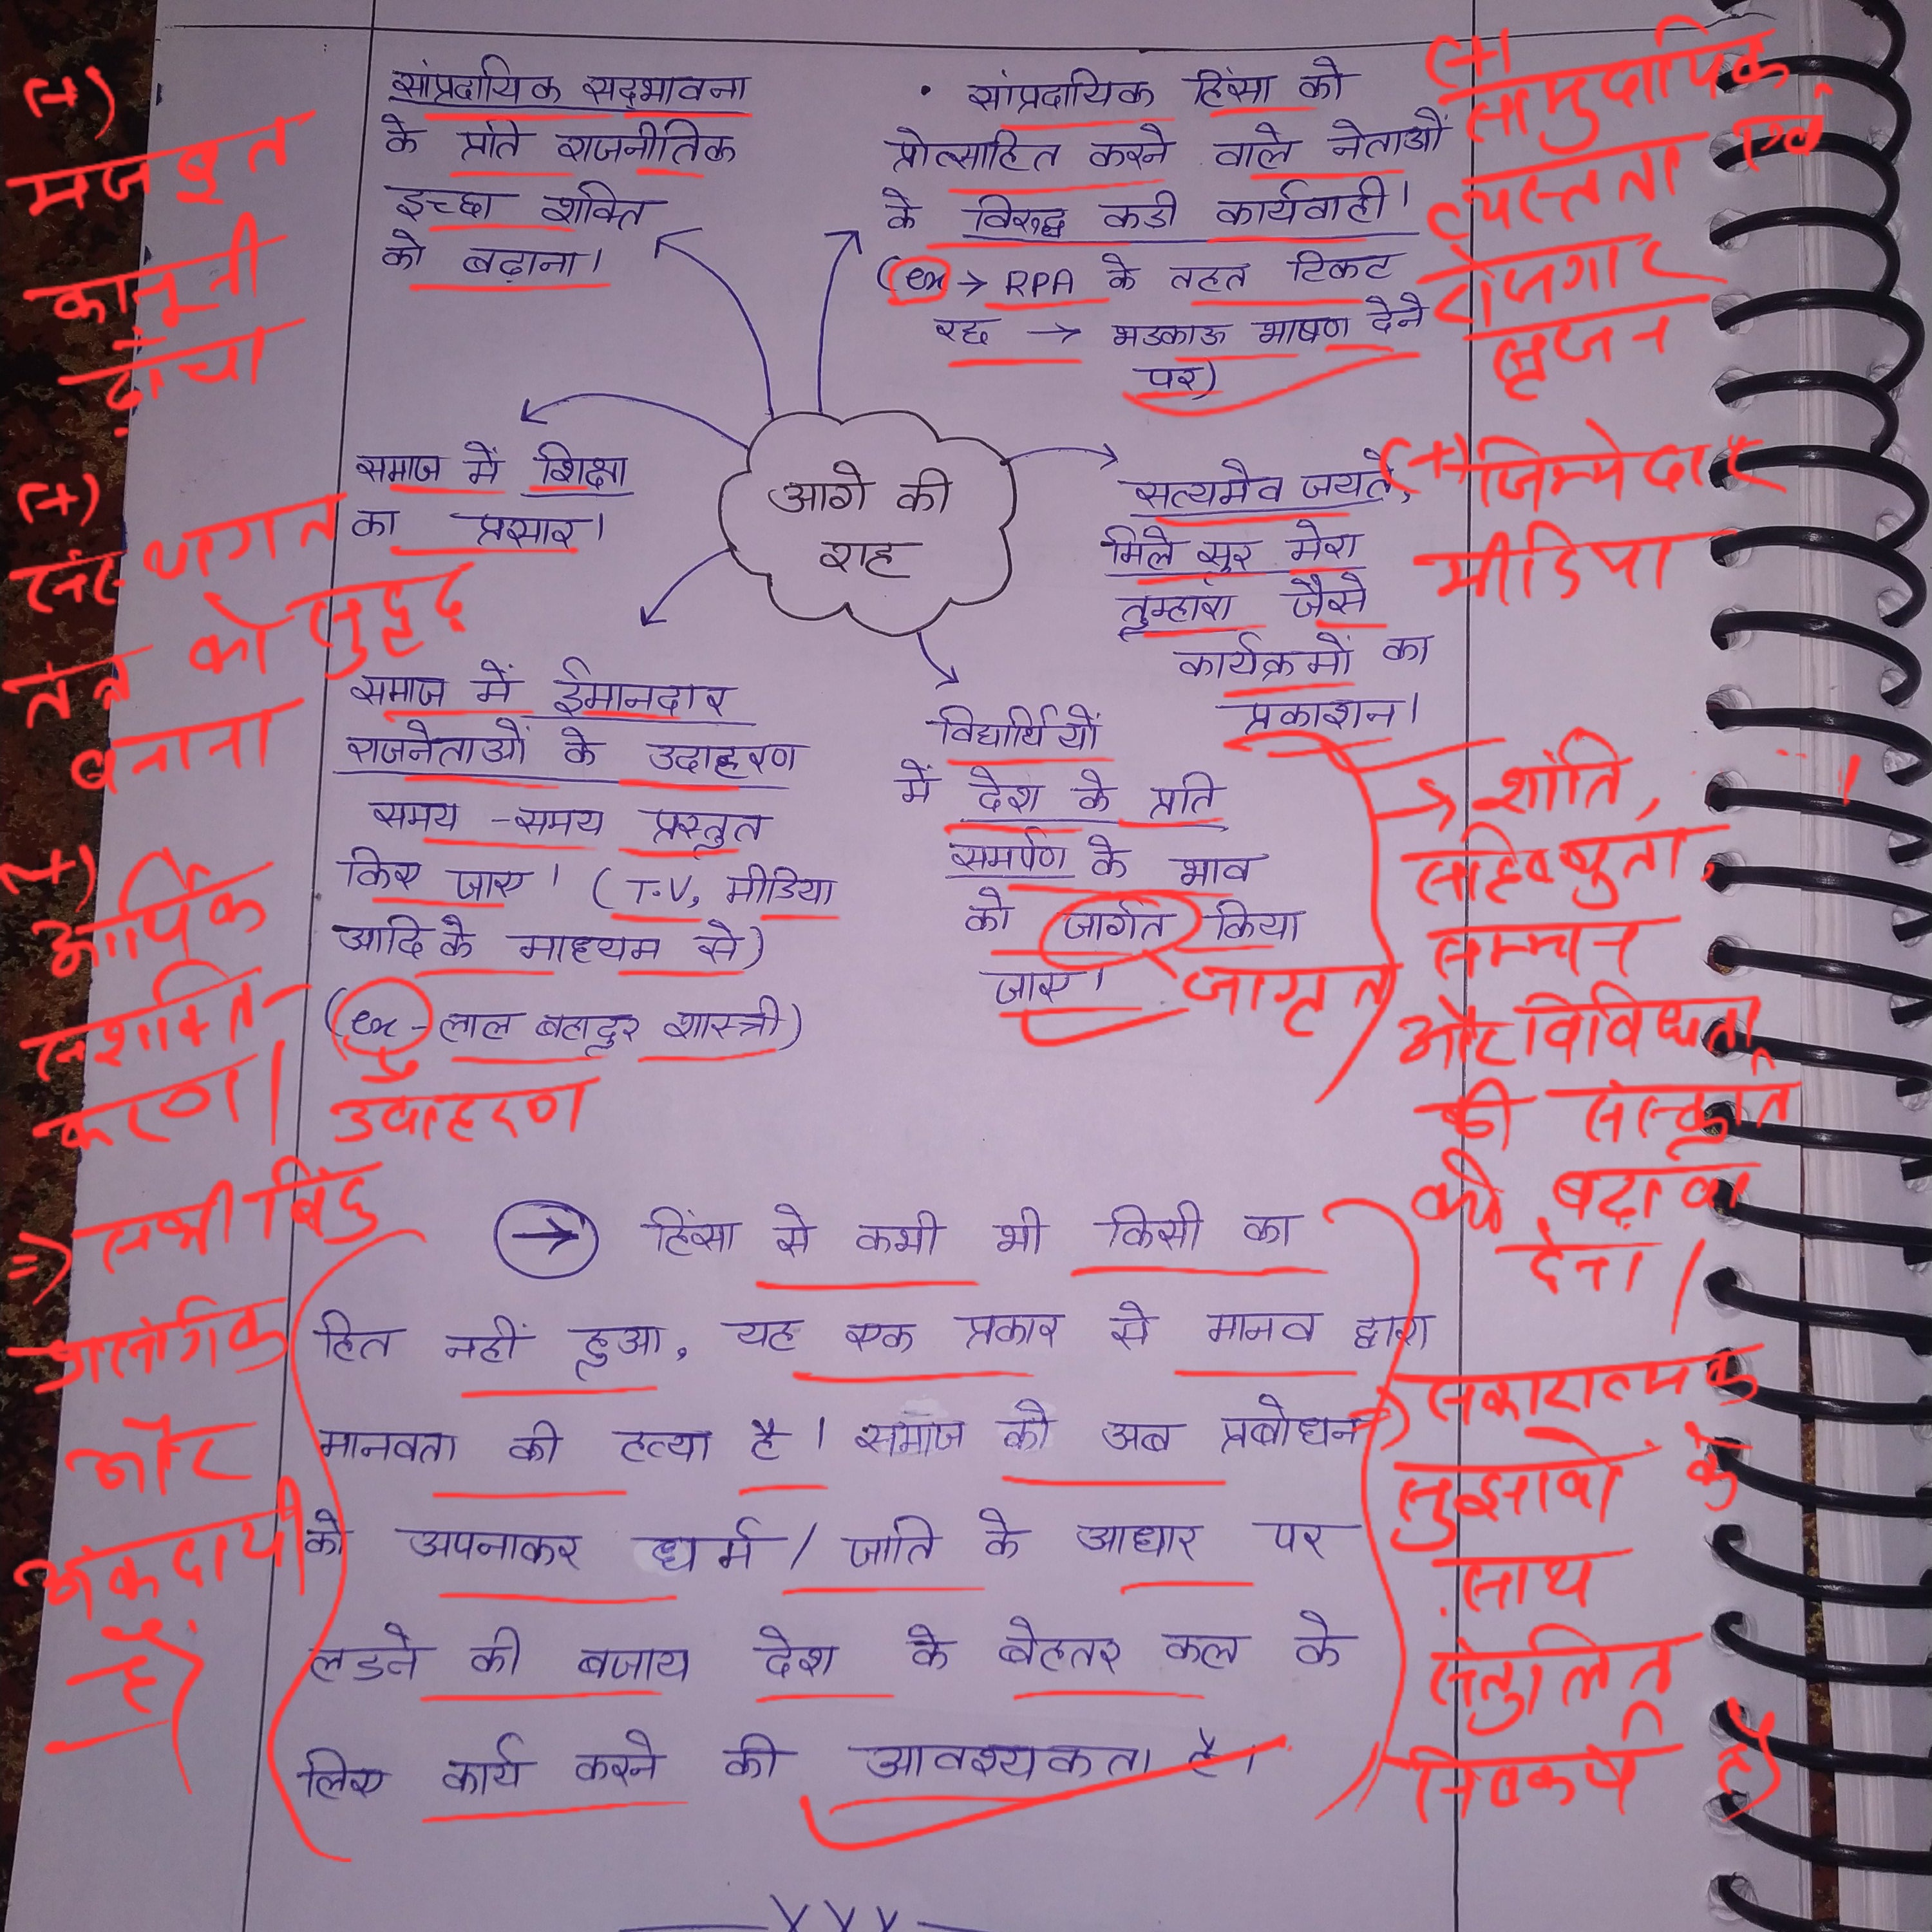 सांप्रदायिक सद्भावना
के प्रति राजनीतिक
इच्छा शक्ति
को बढ़ाना।
• सांप्रदायिक हिंसा को
प्रोत्साहित करने वाले नेताओं
के विरुद्ध कडी कार्यवाही।
(ex → RPA के तहत टिकट
रद्द → भडकाऊ भाषण देने
पर)
आगे की
राह
समाज में शिक्षा
का प्रसार।
सत्यमेव जयते,
मिले सुर मेरा
तुम्हारा जैसे
कार्यक्रमों का
प्रकाशन।
समाज में ईमानदार
राजनेताओं के उदाहरण
समय-समय प्रस्तुत
किए जाए। (T.V, मीडिया
आदि के माध्यम से)
(ex - लाल बहादुर शास्त्री)
उदाहरण
विद्यार्थियों
में देश के प्रति
समर्पण के भाव
को जार्गत किया
जाए।
जागृत
→ हिंसा से कभी भी किसी का
हित नहीं हुआ, यह एक प्रकार से मानव द्वारा
मानवता की हत्या है। समाज को अब प्रबोधन
को अपनाकर धर्म / जाति के आधार पर
लडने की बजाय देश के बेहतर कल के
लिए कार्य करने की आवश्यकता है।
(+)
मजबूत
कानूनी
ढाँचा
(+)
संस्थागत
तंत्र को सुदृढ़
बनाना
(+)
आर्थिक
सशक्ति-
करण।
⇒ सभी बिंदु
प्रासंगिक
और
अंकदायी
हैं
(+)
सामुदायिक
व्यस्तता एवं
रोजगार
सृजन
(+) जिम्मेदार
मीडिया
→ शांति,
सहिष्णुता,
सम्मान
और विविधता
की संस्कृति
को बढ़ावा
देना।
⇒ सकारात्मक
सुझावों के
साथ
संतुलित
निष्कर्ष है